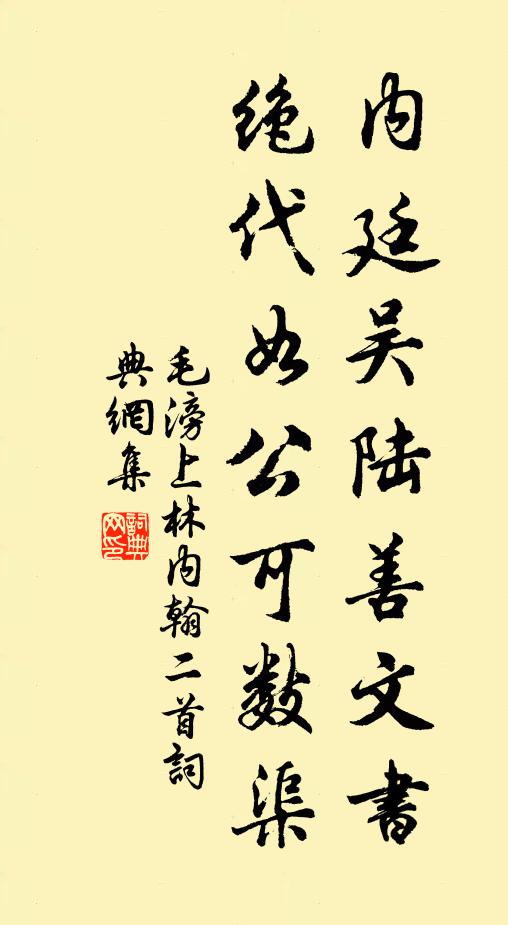 内廷吴陆善文書
绝代如公可数渠
毛滂上林内翰二首詞
典網集
詞典網印